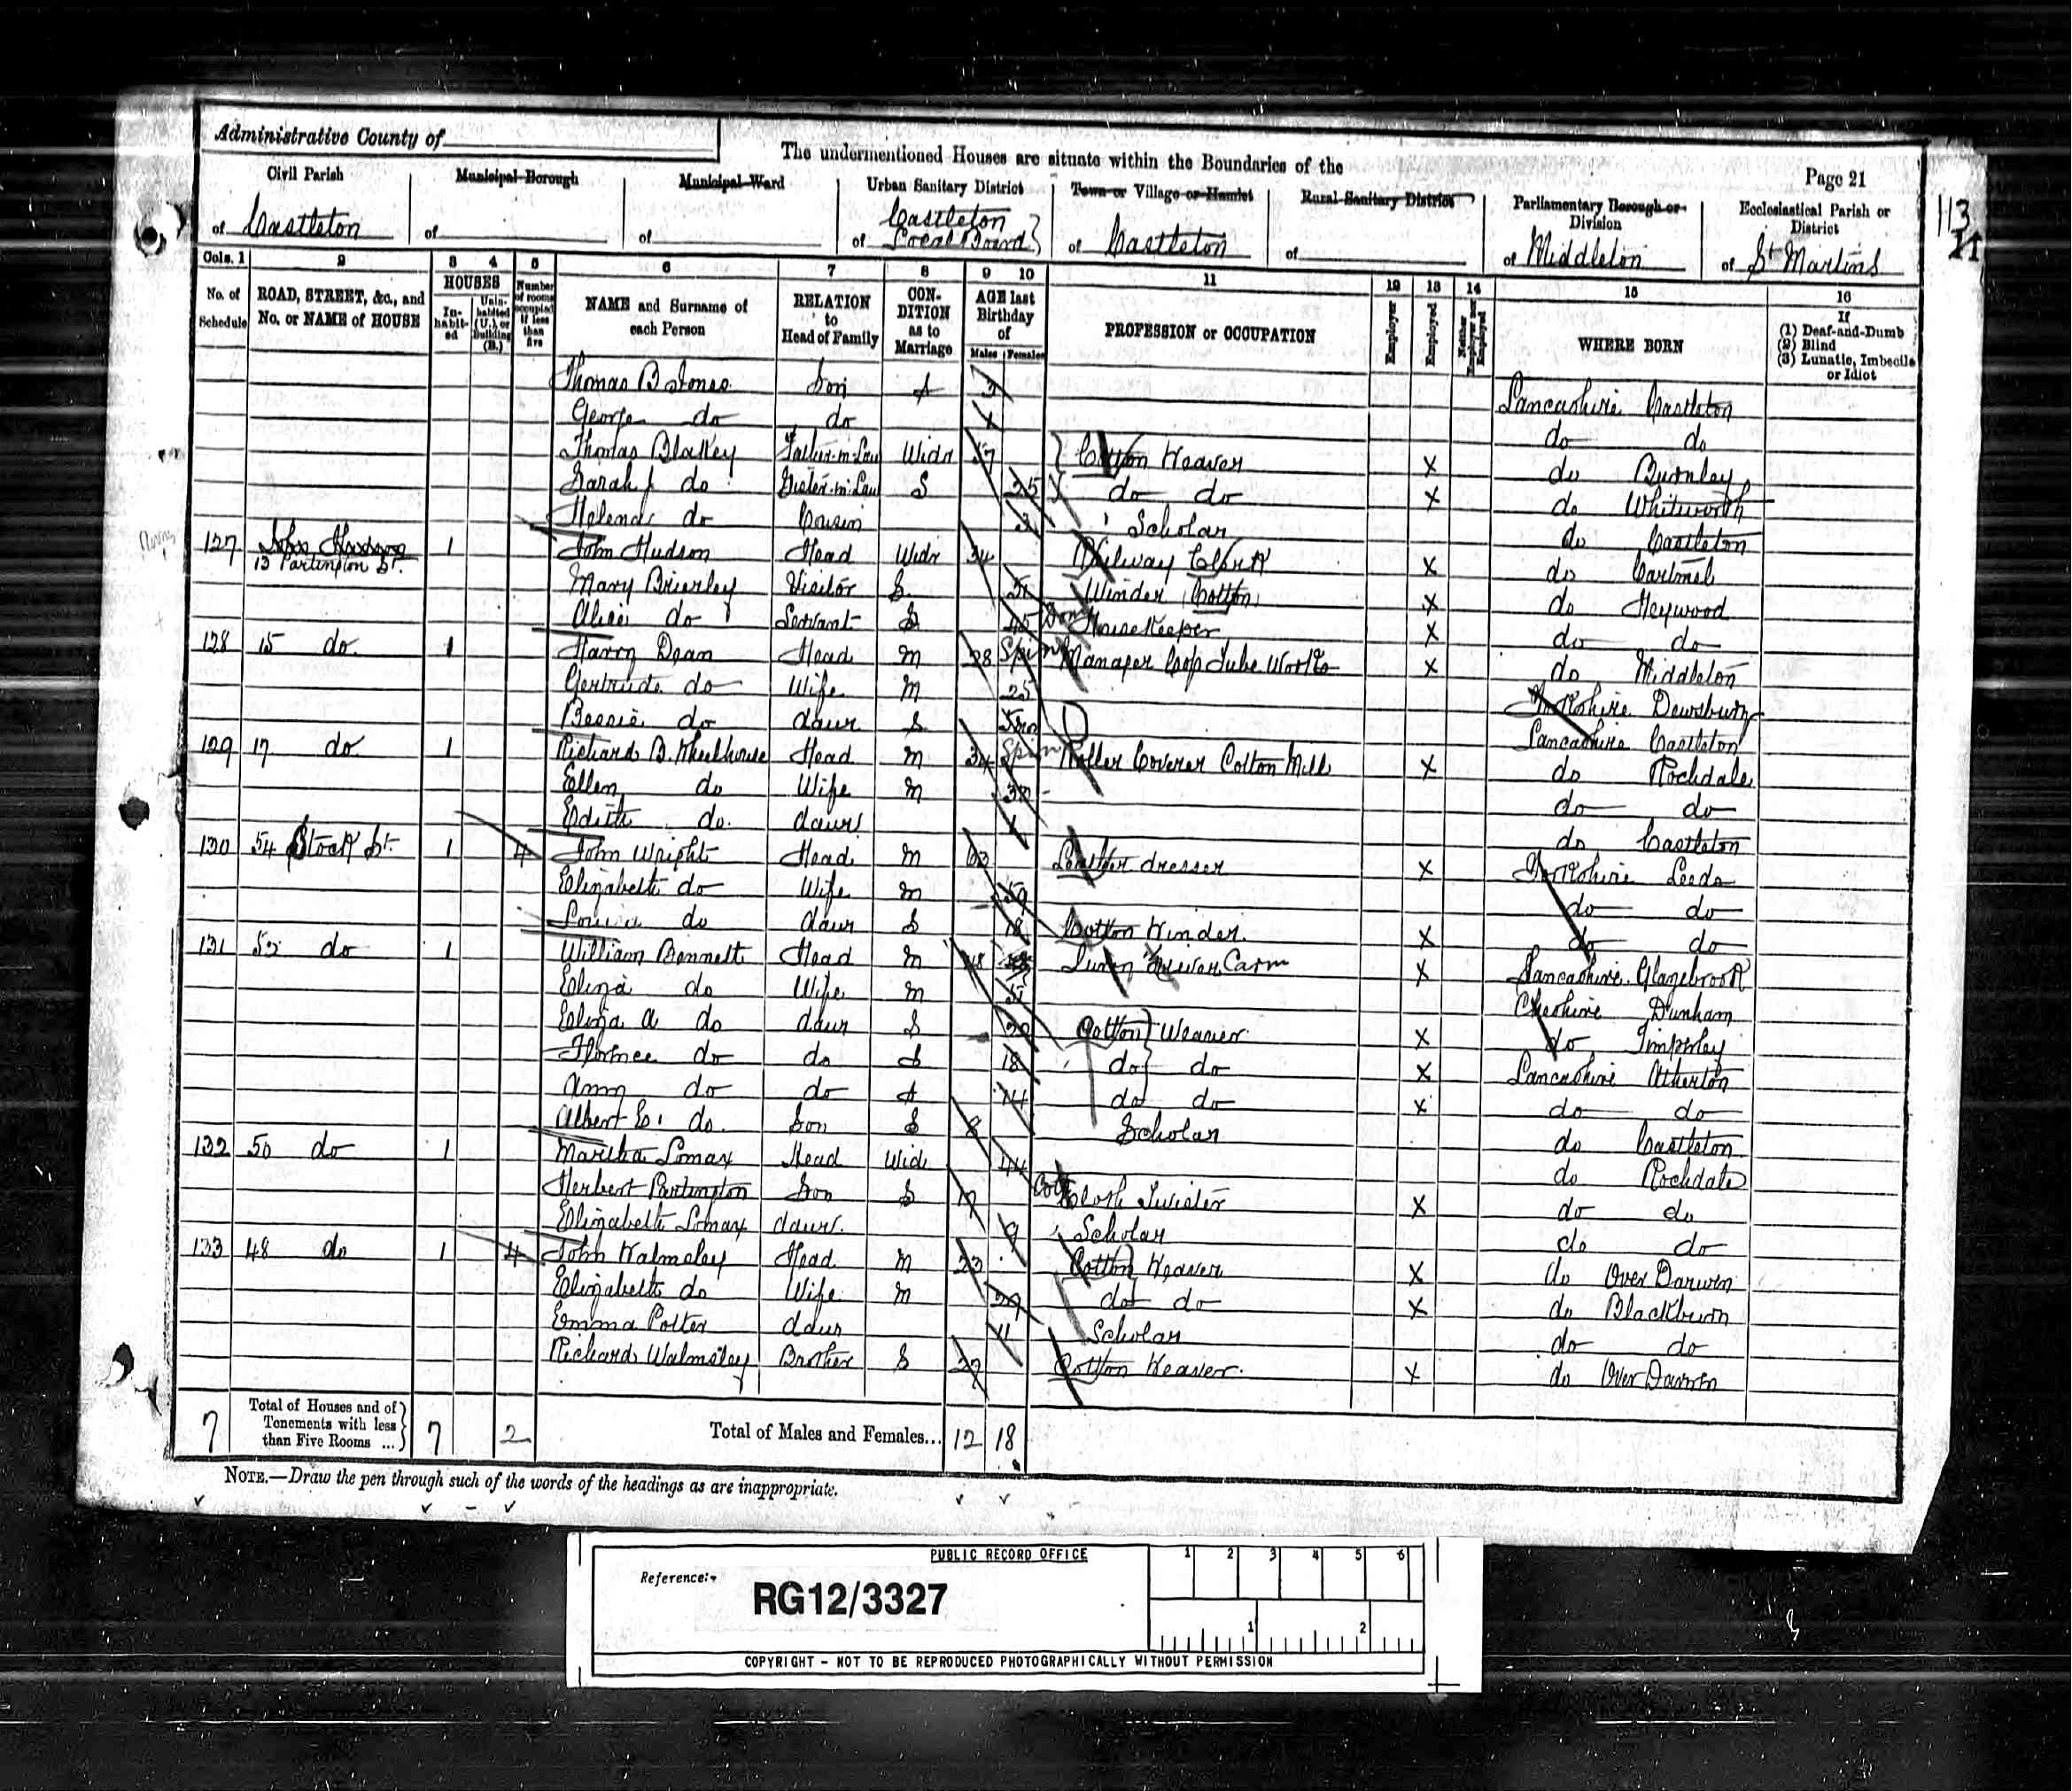 Administrative County of
The undermentioned Houses are situate within the Boundaries of the
Page 21
Civil Parish
Municipal Borough
Municipal Ward
Urban Sanitary District
Town or Village or Hamlet
Rural Sanitary District
Parliamentary Borough or Division
Ecclesiastical Parish or District
of Castleton
of
of
of Castleton Local Board}
of Castleton
of
of Middleton
of St Martins
113
21
Cols. 1 2 3 4 5 6 7 8 9 10 11 12 13 14 15 16
No. of Schedule
ROAD, STREET, &c., and No. or NAME of HOUSE
HOUSES
In-habit-ed
Unin-habited (U.), or Building (B.)
Number of rooms occupied if less than five
NAME and Surname of each Person
RELATION to Head of Family
CON-DITION as to Marriage
AGE last Birthday of
Males Females
PROFESSION or OCCUPATION
Employer
Employed
Neither Employer nor Employed
WHERE BORN
If
(1) Deaf-and-Dumb
(2) Blind
(3) Lunatic, Imbecile or Idiot
Thomas Son S 3 Lancashire Castleton
George do do do do
Thomas Blakey Father-in-Law Widr 57 Cotton Weaver X do Burnley
Sarah J do Sister-in-Law S 25 do do X do Whitworth
Helena do Cousin 3 Scholar do Castleton
127 13 Partington St. 1 John Hudson Head Widr 34 Railway Clerk X do Cartmel
Mary Brierley Visitor S Winder (Cotton) X do Heywood
Alice do Servant S 45 Dom Housekeeper X do do
128 15 do 1 Harry Dean Head M 28 Manager Cop Tube Works X do Middleton
Gertrude do Wife M 25 Yorkshire Dewsbury
Bessie do daur S 5mo Lancashire Castleton
129 17 do 1 Richard B. Wheelhouse Head M 34 Roller Coverer Cotton Mill X do Rochdale
Ellen do Wife M do do
Edith do. daur do Castleton
130 54 Stock St 1 4 John Wright Head M Leather dresser X Yorkshire Leeds
Elizabeth do Wife M 59 do do
Louisa do daur S 18 Cotton Winder. X do do
131 52 do 1 William Bennett Head M 48 X Lancashire Glazebrook
Eliza do Wife M Cheshire Dunham
Eliza A do daur S 20 Cotton Weaver X do Timperley
Florence do do S 18 do do X Lancashire Atherton
Ann do do S 14 do do X do do
Albert E. do. Son S 8 Scholar do Castleton
132 50 do 1 Martha Lomax Head Wid 44 do Rochdale
Herbert Partington Son S Twister X do do
Elizabeth Lomax daur. 9 Scholar do do
133 48 do 1 4 John Walmsley Head M Cotton Weaver X do Over Darwen
Elizabeth do Wife M 29 do do X do Blackburn
Emma Potter daur 11 Scholar do do
Richard Walmsley Brother S Cotton Weaver. X do Over Darwen
7 Total of Houses and of Tenements with less than Five Rooms ...} 7 2 Total of Males and Females... 12 18
NOTE.—Draw the pen through such of the words of the headings as are inappropriate.
PUBLIC RECORD OFFICE
1 2 3 4 5 6
Reference:-
RG12/3327
1 2
COPYRIGHT - NOT TO BE REPRODUCED PHOTOGRAPHICALLY WITHOUT PERMISSION